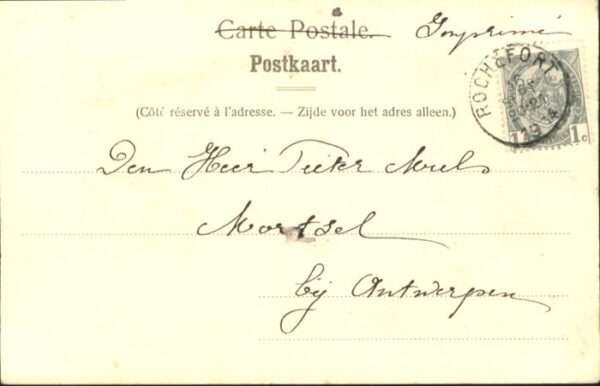 Carte Postale. Imprimé
Postkaart.
(Côté réservé à l'adresse. — Zijde voor het adres alleen.)
ROCHEFORT
1c
Den Heer Pieter Muls
Mortsel
bij Antwerpen